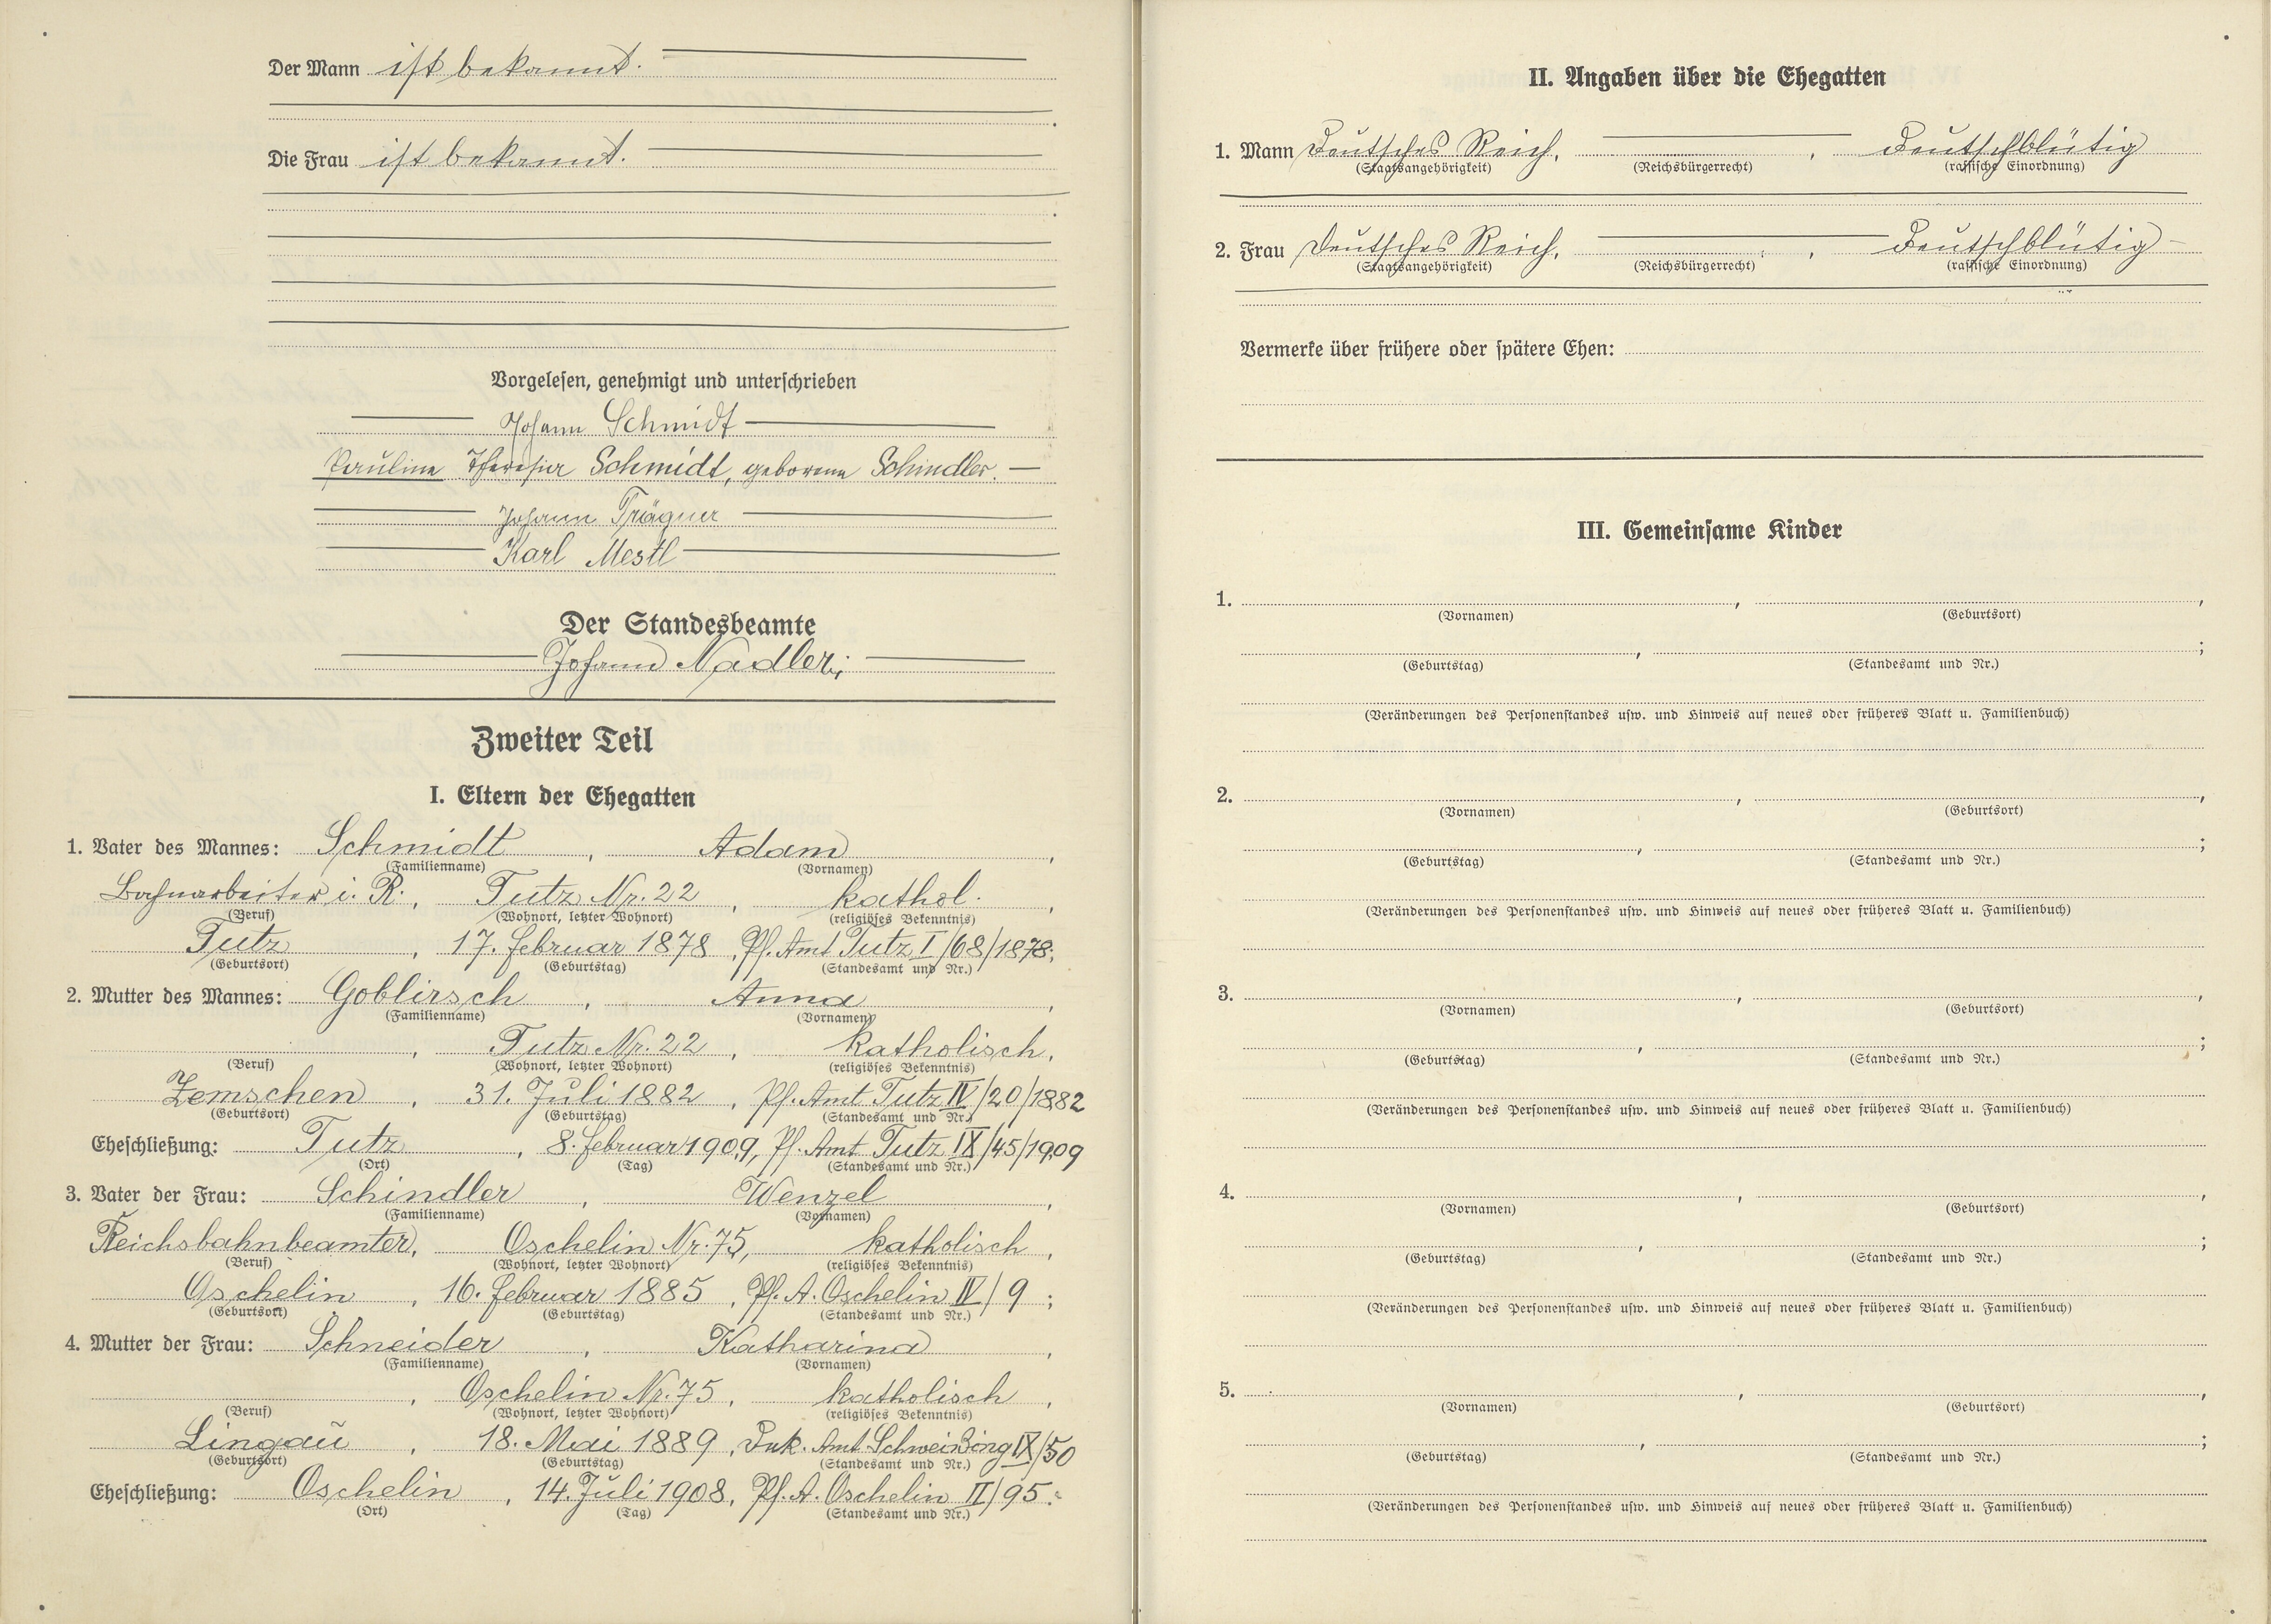 Der Mann ist bekannt.
Die Frau ist bekannt.
Vorgelesen, genehmigt und unterschrieben
Johann Schmidt
Pauline Theresia Schmidt, geborene Schindler.
Johann Trägner
Karl Mestl
Der Standesbeamte
Johann Nadler;
Zweiter Teil
I. Eltern der Ehegatten
1. Vater des Mannes: Schmidt, Adam,
(Familienname) (Vornamen)
Bahnarbeiter i. R., Tutz Nr. 22, kathol.,
(Beruf) (Wohnort, letzter Wohnort) (religiöses Bekenntnis)
Tutz, 17. Februar 1878, Pf. Amt Tutz I/68/1878;
(Geburtsort) (Geburtstag) (Standesamt und Nr.)
2. Mutter des Mannes: Goblirsch, Anna,
(Familienname) (Vornamen)
, Tutz Nr. 22, katholisch,
(Beruf) (Wohnort, letzter Wohnort) (religiöses Bekenntnis)
Zemschen, 31. Juli 1882, Pf. Amt Tutz IV/20/1882
(Geburtsort) (Geburtstag) (Standesamt und Nr.)
Eheschließung: Tutz, 8. Februar 1909, Pf. Amt Tutz IX/45/1909
(Ort) (Tag) (Standesamt und Nr.)
3. Vater der Frau: Schindler, Wenzel,
(Familienname) (Vornamen)
Reichsbahnbeamter, Oschelin Nr. 75, katholisch,
(Beruf) (Wohnort, letzter Wohnort) (religiöses Bekenntnis)
Oschelin, 16. Februar 1885, Pf. A. Oschelin IV/9;
(Geburtsort) (Geburtstag) (Standesamt und Nr.)
4. Mutter der Frau: Schneider, Katharina,
(Familienname) (Vornamen)
, Oschelin Nr. 75, katholisch,
(Beruf) (Wohnort, letzter Wohnort) (religiöses Bekenntnis)
Lingau, 18. Mai 1889, Amt Schweißing IX/50
(Geburtsort) (Geburtstag) (Standesamt und Nr.)
Eheschließung: Oschelin, 14. Juli 1908, Pf. A. Oschelin II/95.
(Ort) (Tag) (Standesamt und Nr.)
II. Angaben über die Ehegatten
1. Mann Deutsches Reich, , Deutschblütig
(Staatsangehörigkeit) (Reichsbürgerrecht) (rassische Einordnung)
2. Frau Deutsches Reich, , Deutschblütig
(Staatsangehörigkeit) (Reichsbürgerrecht) (rassische Einordnung)
Vermerke über frühere oder spätere Ehen:
III. Gemeinsame Kinder
1. , ,
(Vornamen) (Geburtsort)
, ;
(Geburtstag) (Standesamt und Nr.)
(Veränderungen des Personenstandes usw. und Hinweis auf neues oder früheres Blatt u. Familienbuch)
2. , ,
(Vornamen) (Geburtsort)
, ;
(Geburtstag) (Standesamt und Nr.)
(Veränderungen des Personenstandes usw. und Hinweis auf neues oder früheres Blatt u. Familienbuch)
3. , ,
(Vornamen) (Geburtsort)
, ;
(Geburtstag) (Standesamt und Nr.)
(Veränderungen des Personenstandes usw. und Hinweis auf neues oder früheres Blatt u. Familienbuch)
4. , ,
(Vornamen) (Geburtsort)
, ;
(Geburtstag) (Standesamt und Nr.)
(Veränderungen des Personenstandes usw. und Hinweis auf neues oder früheres Blatt u. Familienbuch)
5. , ,
(Vornamen) (Geburtsort)
, ;
(Geburtstag) (Standesamt und Nr.)
(Veränderungen des Personenstandes usw. und Hinweis auf neues oder früheres Blatt u. Familienbuch)